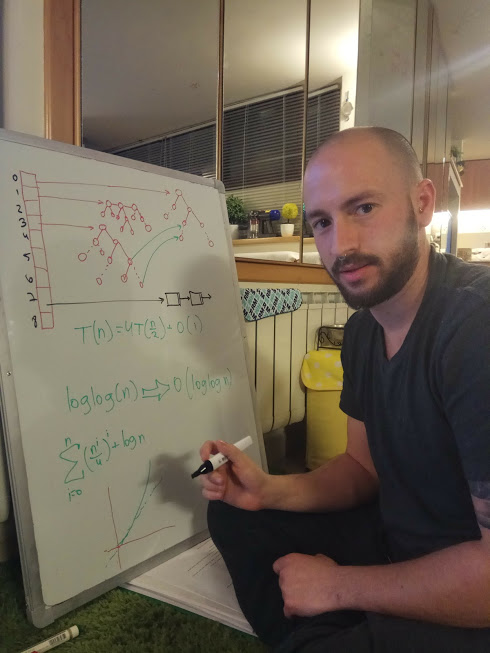 0
1
2
3
4
5
6
7
8
T(n)=4T(n/2)+O(1)
loglog(n) ⇒ O(loglog n)
n
∑ (n^i/4)^i + logn
i=0